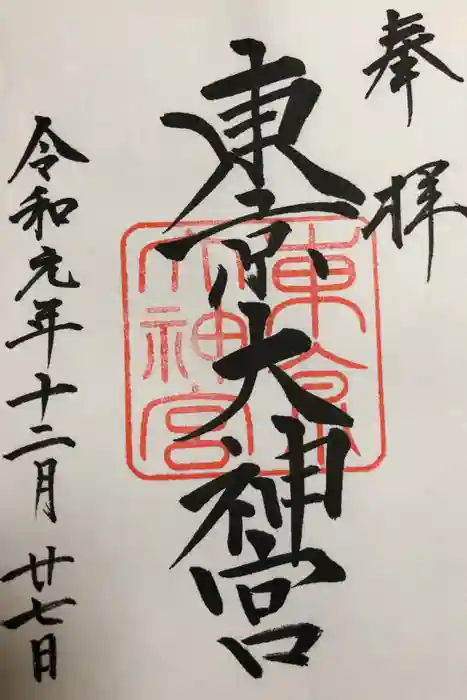 奉拝
東京大神宮
東京
大神宮
令和元年十二月廿七日